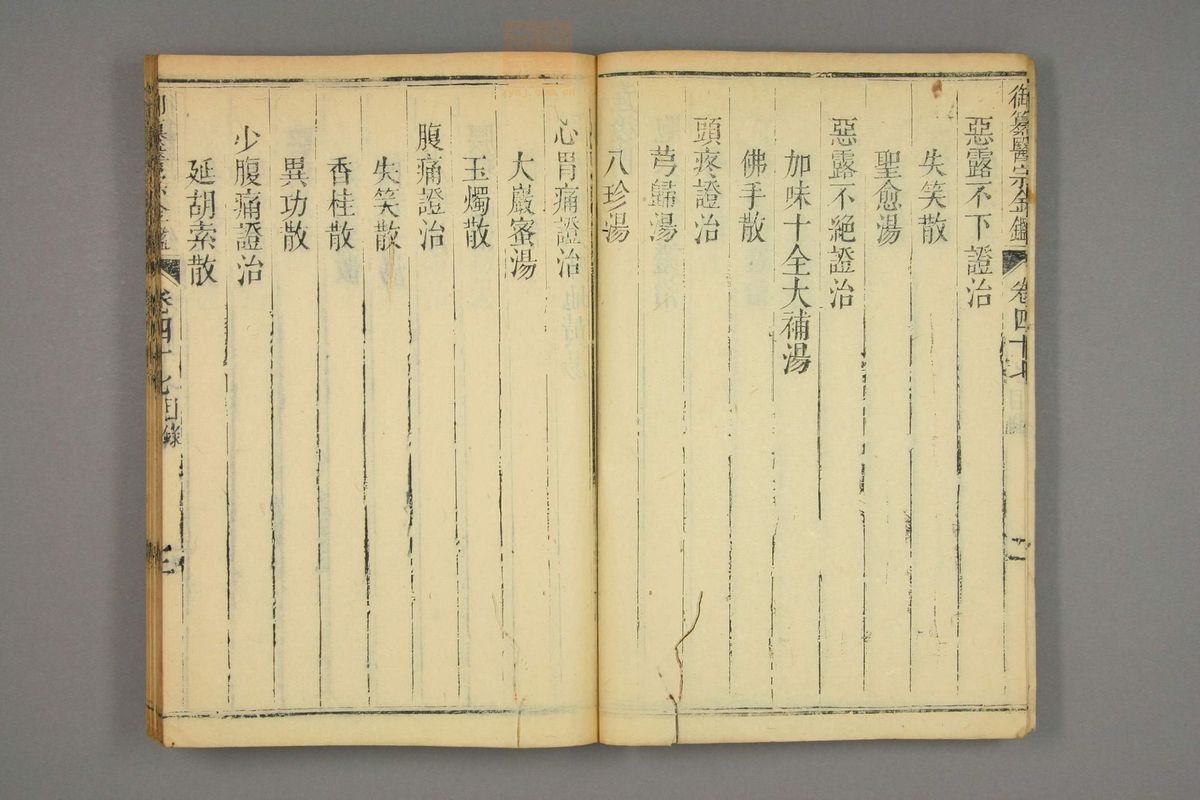 御纂醫宗金鑑 卷四十七 目錄
惡露不下證治
失笑散
聖愈湯
惡露不絕證治
加味十全大補湯
佛手散
頭疼證治
芎歸湯
八珍湯
心胃痛證治
大巖蜜湯
玉燭散
腹痛證治
失笑散
香桂散
異功散
少腹痛證治
延胡索散
卷四十七目錄